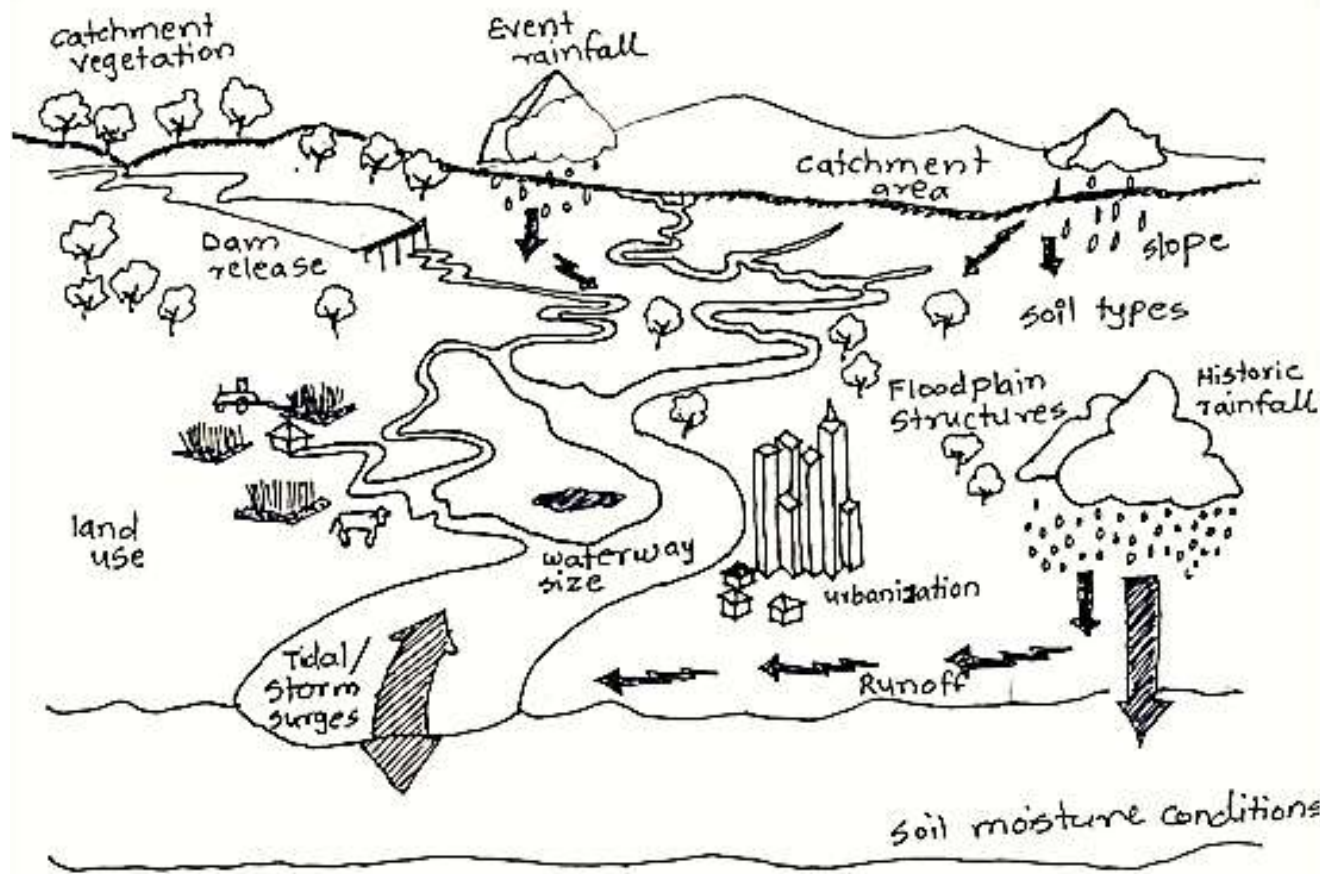 catchment
vegetation
Event
rainfall
catchment
area
Dam
release
slope
soil types
Floodplain
structures
Historic
rainfall
land
use
waterway
size
urbanization
Tidal/
storm
surges
Runoff
soil moisture conditions